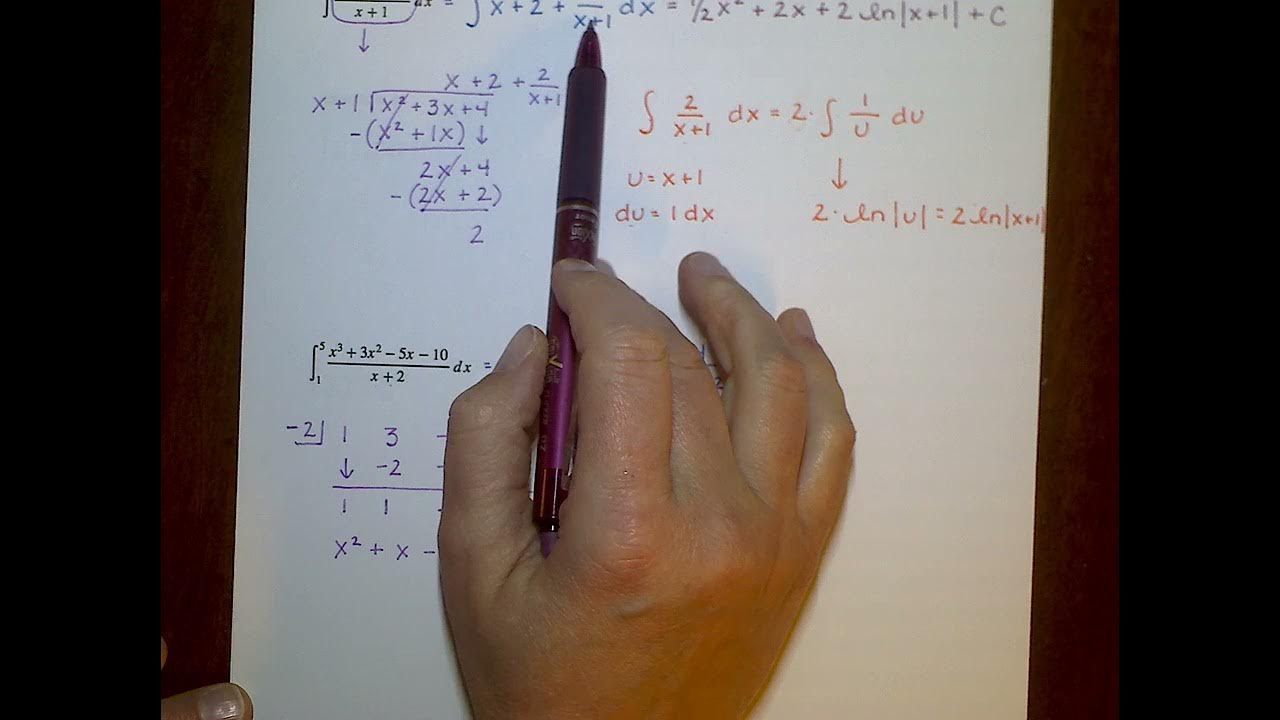 ∫ x+1 dx = ∫ x + 2 + x+1 dx = 1/2 x² + 2x + 2 ln|x+1| + C
↓
x + 2 + 2/(x+1)
x + 1 | x² + 3x + 4
-(x² + 1x) ↓
2x + 4
-(2x + 2)
2
∫ 2/(x+1) dx = 2 · ∫ 1/U du
U = x + 1 ↓
du = 1 dx 2 · ln|U| = 2 ln|x+1|
∫₁⁵ (x³ + 3x² − 5x − 10)/(x + 2) dx =
-2| 1 3 -
↓ -2
1 1
x² + x -